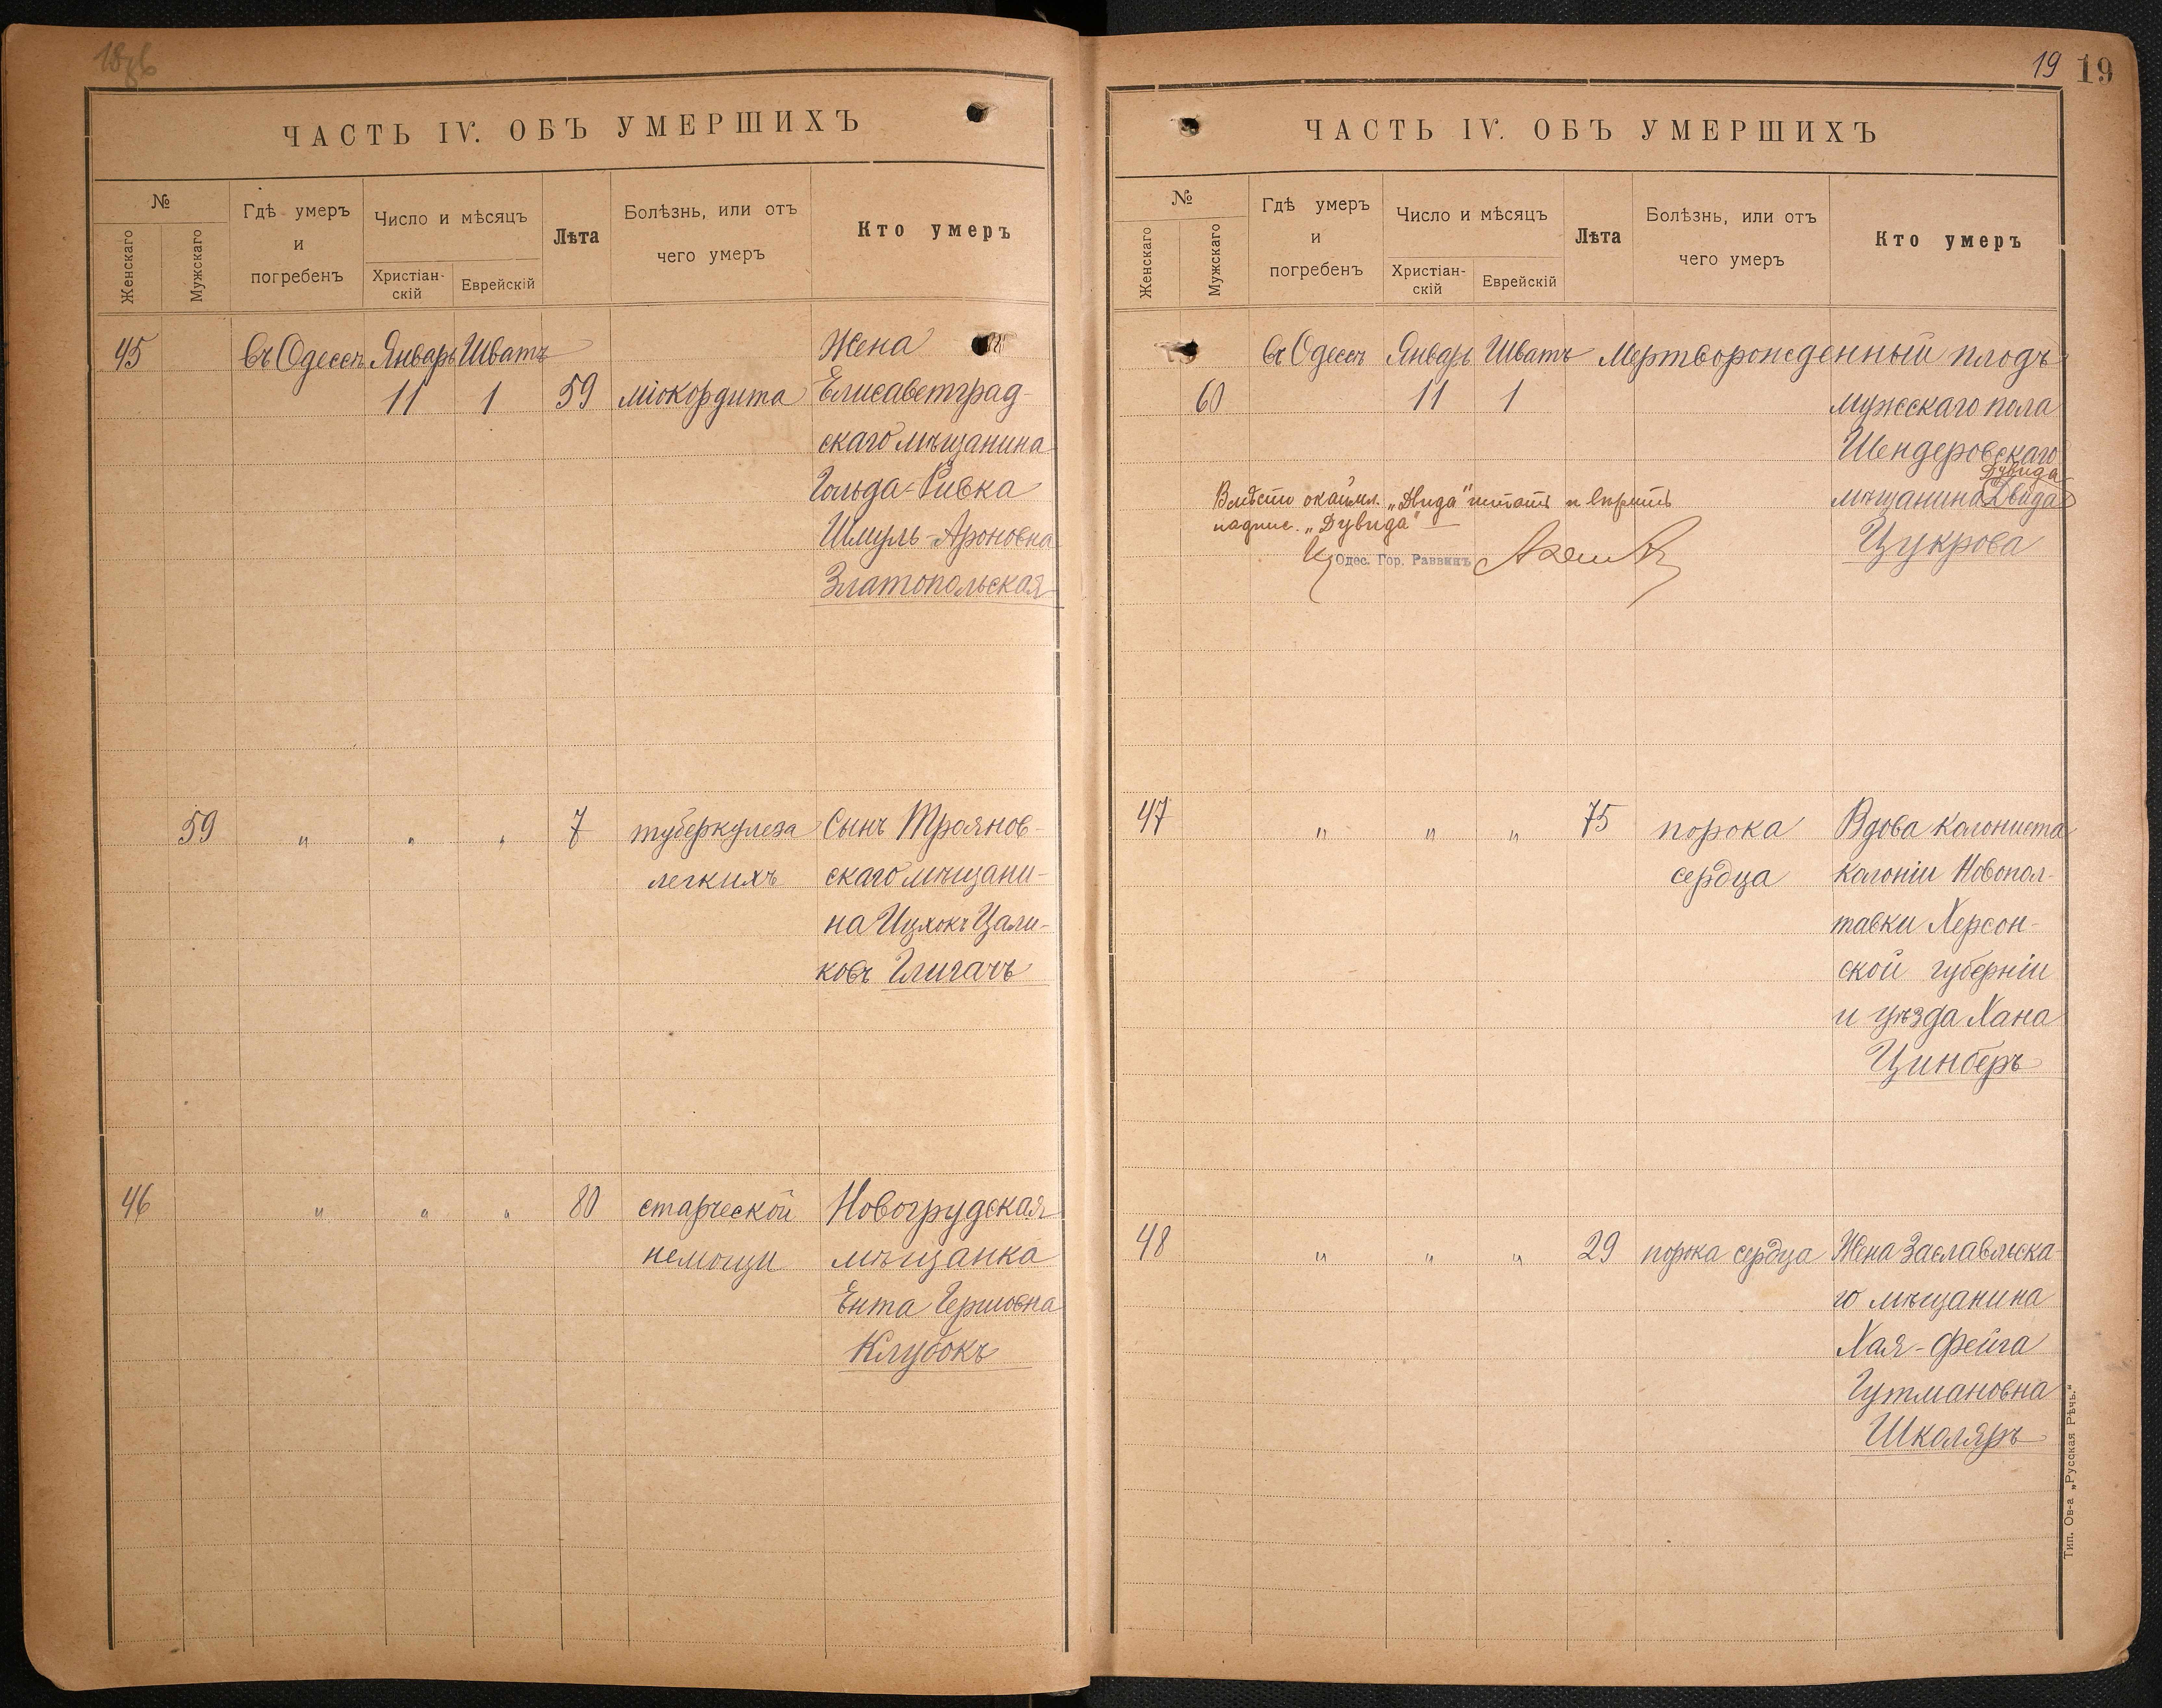 ЧАСТЬ IV. ОБЪ УМЕРШИХЪ
№
Женскаго
Мужскаго
Гдѣ умеръ
и
погребенъ
Число и мѣсяцъ
Христіан-
скій
Еврейскій
Лѣта
Болѣзнь, или отъ
чего умеръ
Кто умеръ
45 въ Одессѣ Январь Шватъ Жена
11 1 59 міокордита Елисаветград-
скаго мѣщанина
Гольда-Ривка
Шмуль-Ароновна
Златопольская
59 " " " 7 туберкулеза Сынъ Троянов-
легкихъ скаго мѣщани-
на Ицхокъ Цали-
ковъ Глигачъ
46 " " " 80 старческой Новогрудская
немощи мѣщанка
Ента Гершовна
Клубокъ
19 19
ЧАСТЬ IV. ОБЪ УМЕРШИХЪ
№
Женскаго
Мужскаго
Гдѣ умеръ
и
погребенъ
Число и мѣсяцъ
Христіан-
скій
Еврейскій
Лѣта
Болѣзнь, или отъ
чего умеръ
Кто умеръ
въ Одессѣ Январь Шватъ Мертворожденный плодъ
60 11 1 мужскаго пола
Шендеровскаго
Дувида
мѣщанина Двида
Цукрова
Вмѣсто окаймл. „Двида" читать и вѣрить
надпис. „Дувида"
Одес. Гор. Раввинъ
47 " " " 75 порока Вдова колониста
сердца колоніи Новопол-
тавки Херсон-
ской губерніи
и уѣзда Хана
Цинберъ
48 " " " 29 порока сердца Жена Заславльска-
го мѣщанина
Хая-Фейга
Гутмановна
Школяръ
Тип. Ов-а „Русская Рѣчь."